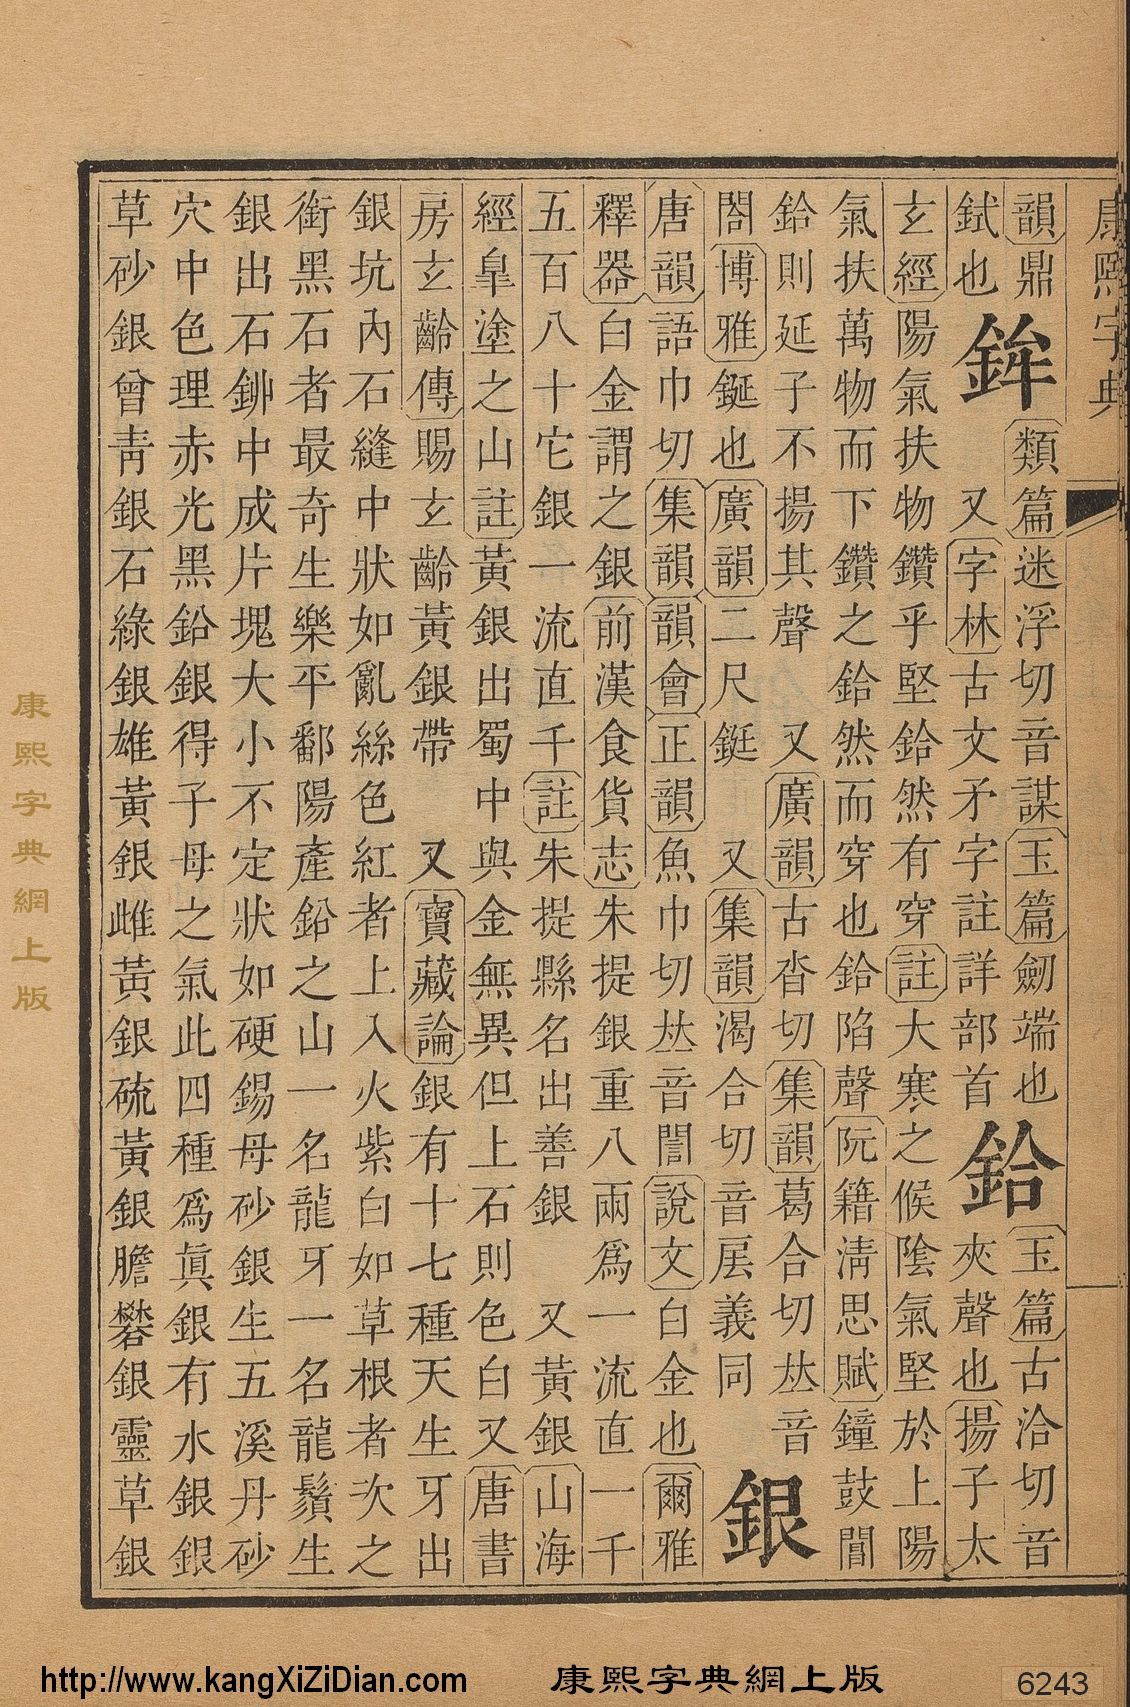 康熙字典
韻鼎
鉾
類篇迷浮切音謀玉篇劒端也
鉿
玉篇古洽切音
鉽也
又字林古文矛字註詳部首
夾聲也揚子太
玄經陽氣扶物鑽乎堅鉿然有穿註大寒之候陰氣堅於上陽
氣扶萬物而下鑽之鉿然而穿也鉿陷聲阮籍淸思賦鐘鼓閶
鉿則延子不揚其聲 又廣韻古沓切集韻葛合切𠀤音
閤博雅鋋也廣韻二尺鋌 又集韻渴合切音㞘義同
銀
唐韻語巾切集韻韻會正韻魚巾切𠀤音誾說文白金也爾雅
釋器白金謂之銀前漢食貨志朱提銀重八兩爲一流直一千
五百八十它銀一流直千註朱提縣名出善銀 又黃銀山海
經皐塗之山註黃銀出蜀中與金無異但上石則色白又唐書
房玄齡傳賜玄齡黃銀帶 又寶藏論銀有十七種天生牙出
銀坑內石縫中狀如亂絲色紅者上入火紫白如草根者次之
銜黑石者最奇生樂平鄱陽產鉛之山一名龍牙一名龍鬚生
銀出石鉚中成片塊大小不定狀如硬錫母砂銀生五溪丹砂
穴中色理赤光黑鉛銀得子母之氣此四種爲眞銀有水銀銀
草砂銀曾靑銀石綠銀雄黃銀雌黃銀硫黃銀膽礬銀靈草銀
康熙字典網上版
http://www.kangXiZiDian.com 康熙字典網上版 6243